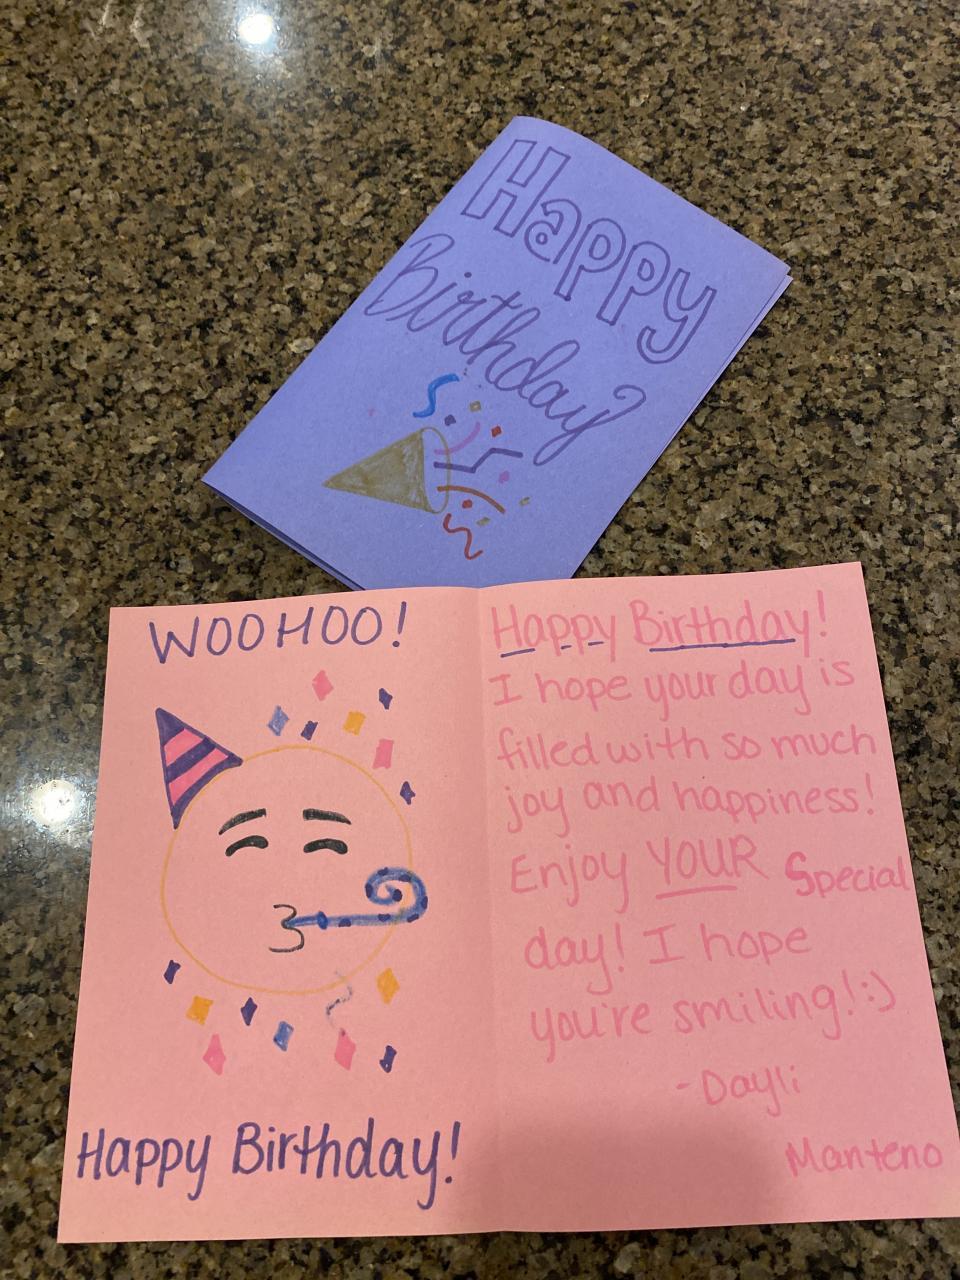 Happy
Birthday
WOOHOO!
Happy Birthday!
Happy Birthday!
I hope your day is
filled with so much
joy and happiness!
Enjoy YOUR Special
day! I hope
you're smiling! :)
-Dayli
Manteno